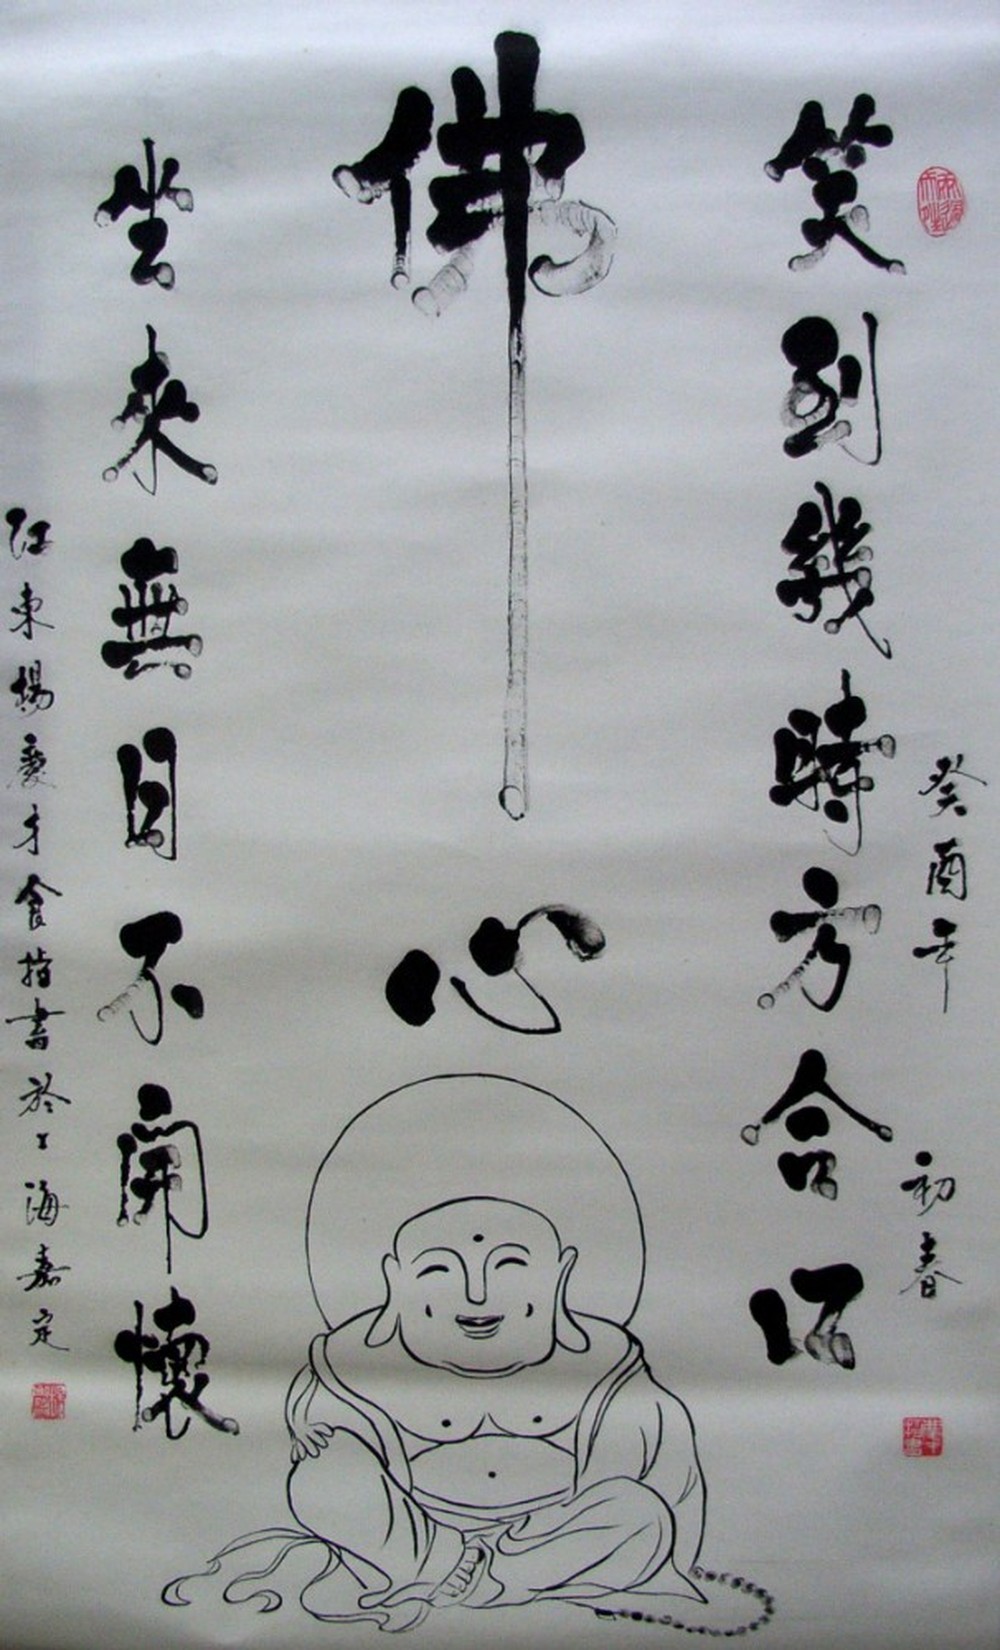 癸酉年 初春
笑到幾時方合口
佛心
坐來無日不開懷
江東楊慶才食指書於上海嘉定